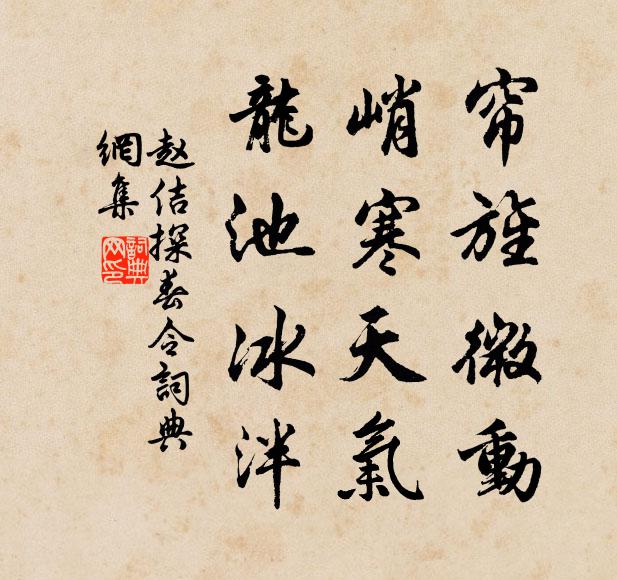 帘旌微動
峭寒天氣
龍池冰泮
赵佶探春令詞典
網集
詞典
网印